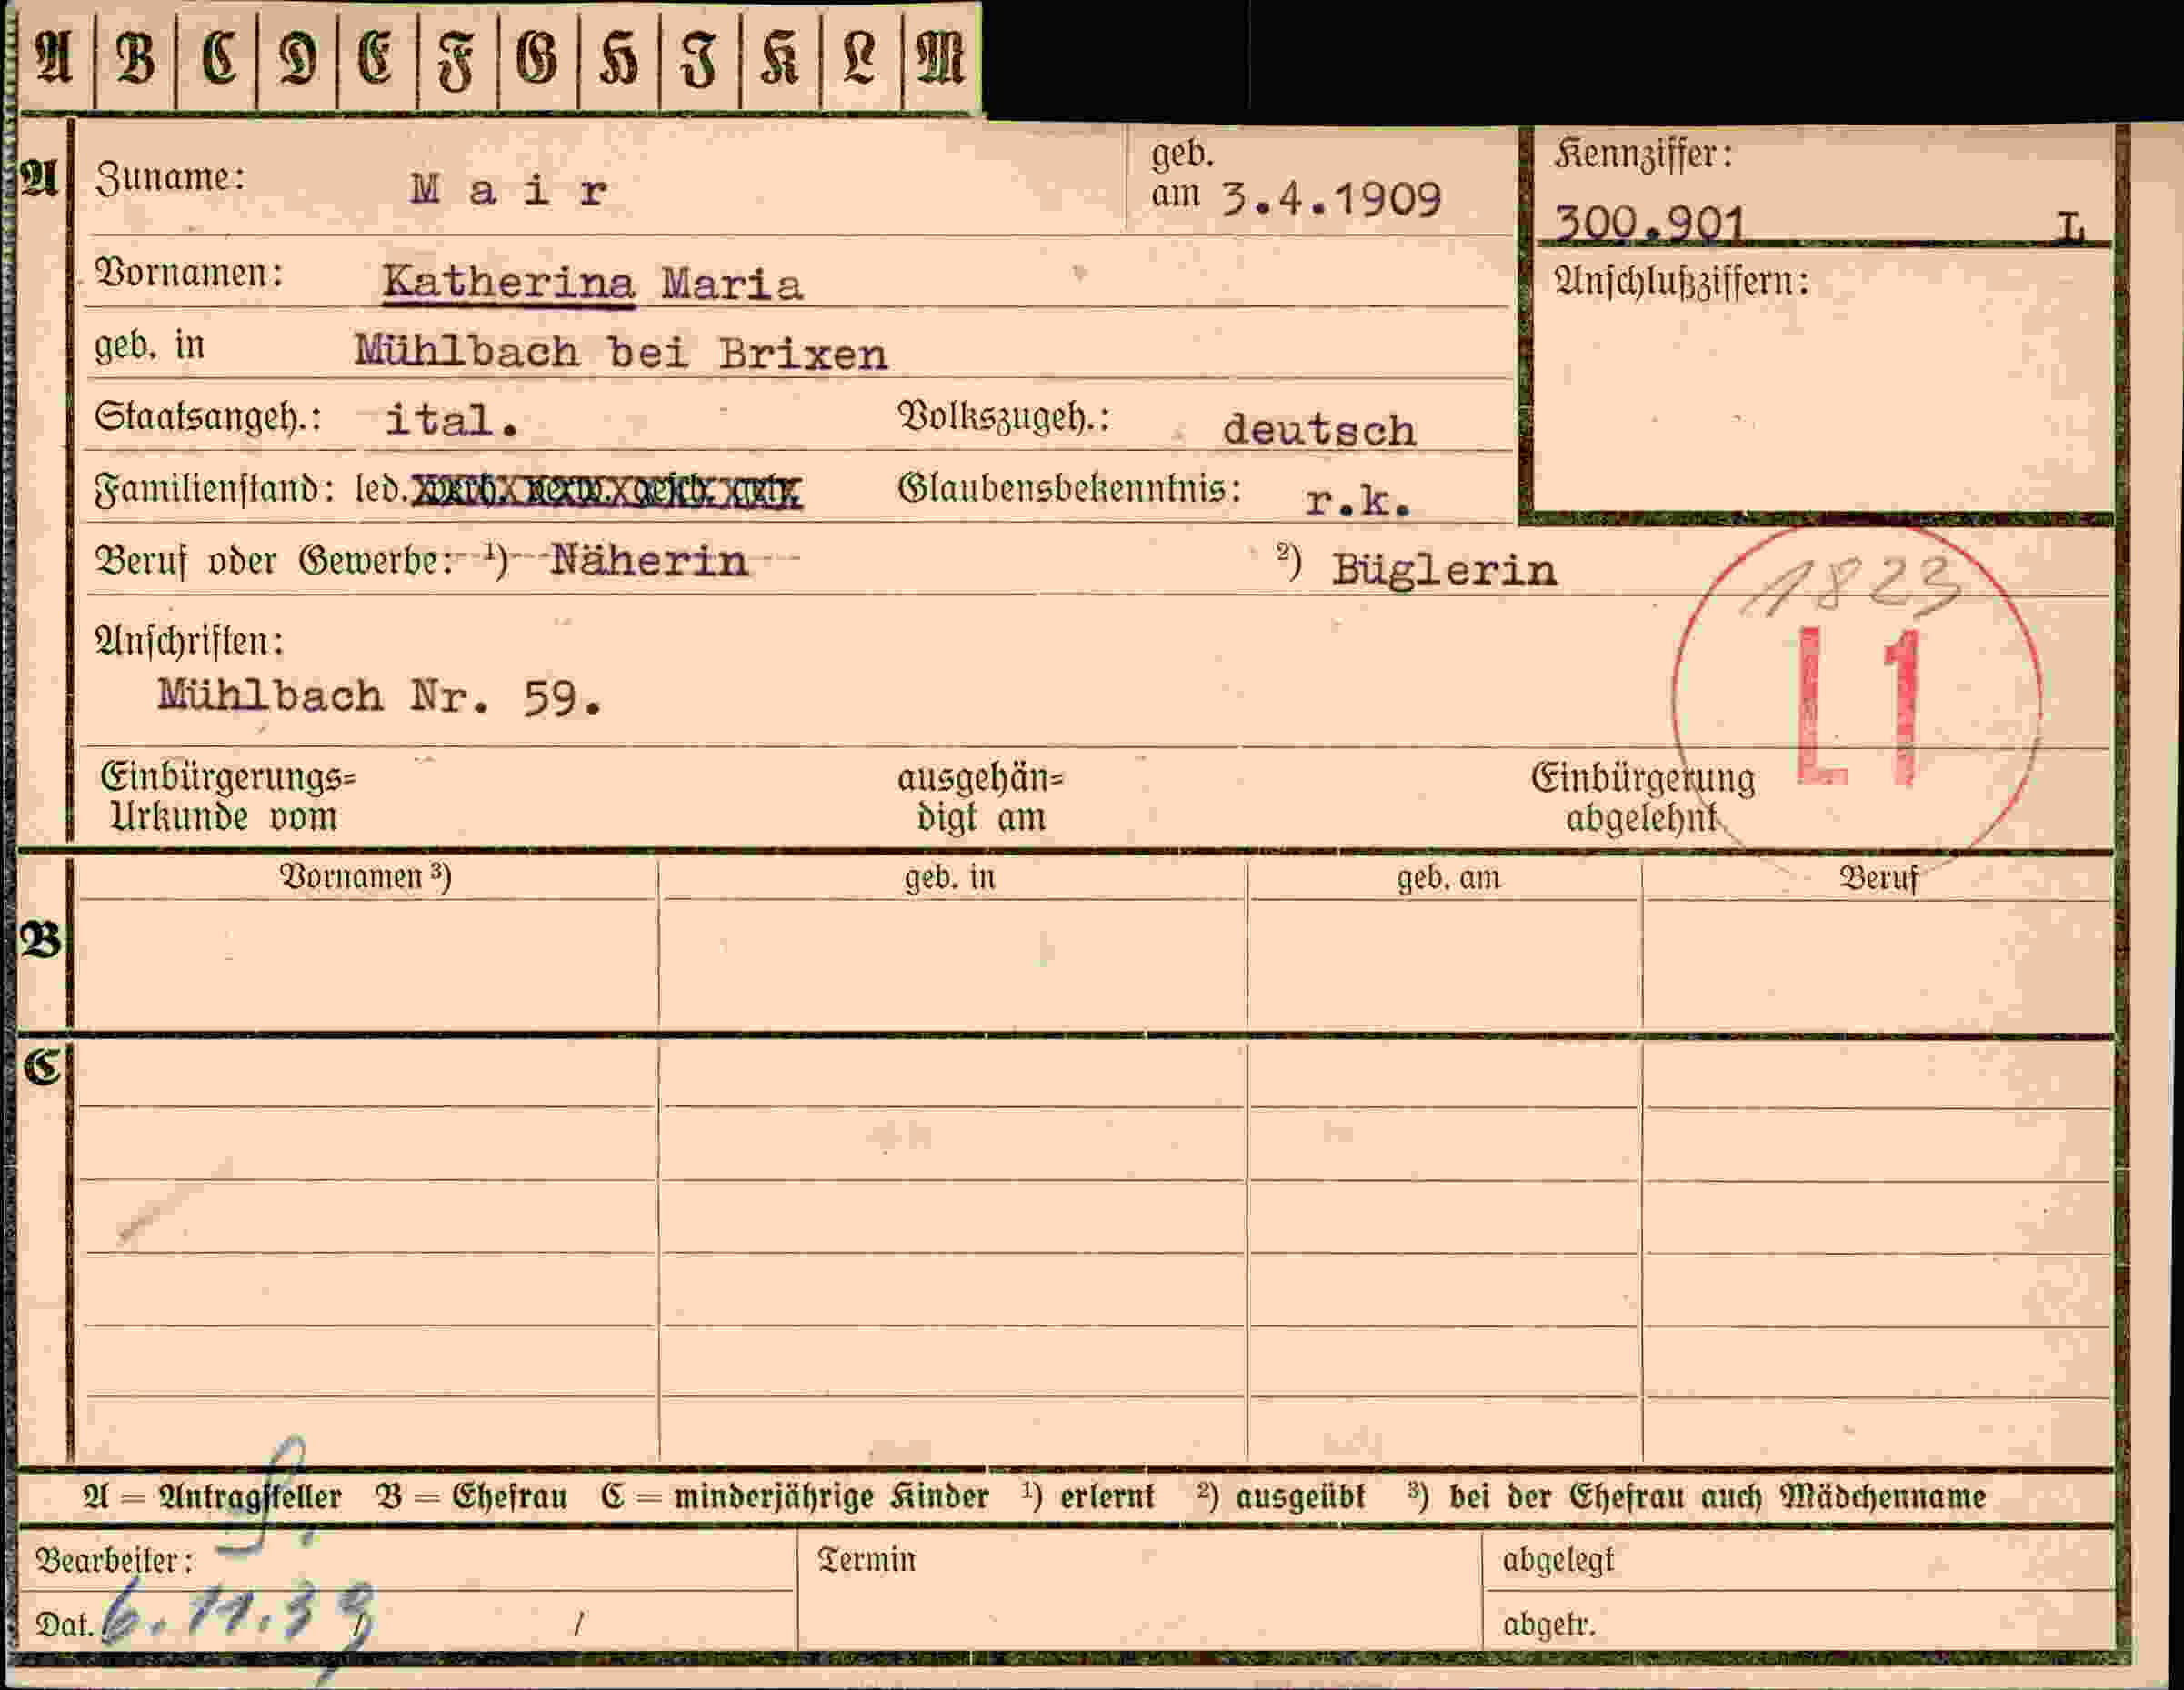 A B C D E F G H I K L M
A Zuname: Mair geb. am 3.4.1909 Kennziffer:
300.901 L
Vornamen: Katherina Maria Anschlußziffern:
geb. in Mühlbach bei Brixen
Staatsangeh.: ital. Volkszugeh.: deutsch
Familienstand: led. Glaubensbekenntnis: r.k.
Beruf oder Gewerbe: ¹) Näherin ²) Büglerin
1823
L1
Anschriften:
Mühlbach Nr. 59.
Einbürgerungs= ausgehän= Einbürgerung
Urkunde vom digt am abgelehnt
Vornamen ³) geb. in geb. am Beruf
B
C
A = Antragsteller B = Ehefrau C = minderjährige Kinder ¹) erlernt ²) ausgeübt ³) bei der Ehefrau auch Mädchenname
Bearbeiter: Termin abgelegt
Dat. 6.11.39 / abgetr.